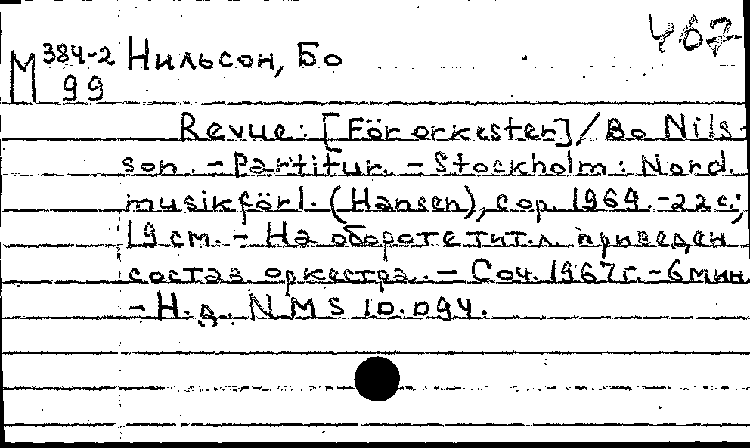 467
М 384-2 Нильсон, Бо
99
Revue: [För orkester] / Bo Nils-
son. – Partitur. – Stockholm: Nord.
musikförl. (Hansen), cop. 1964. – 22 с.;
19 cm. – На обороте тит. л. приведен
состав оркестра. – Соч. 1967 г. – 6 мин.
– Н. д. NMS 10.094.